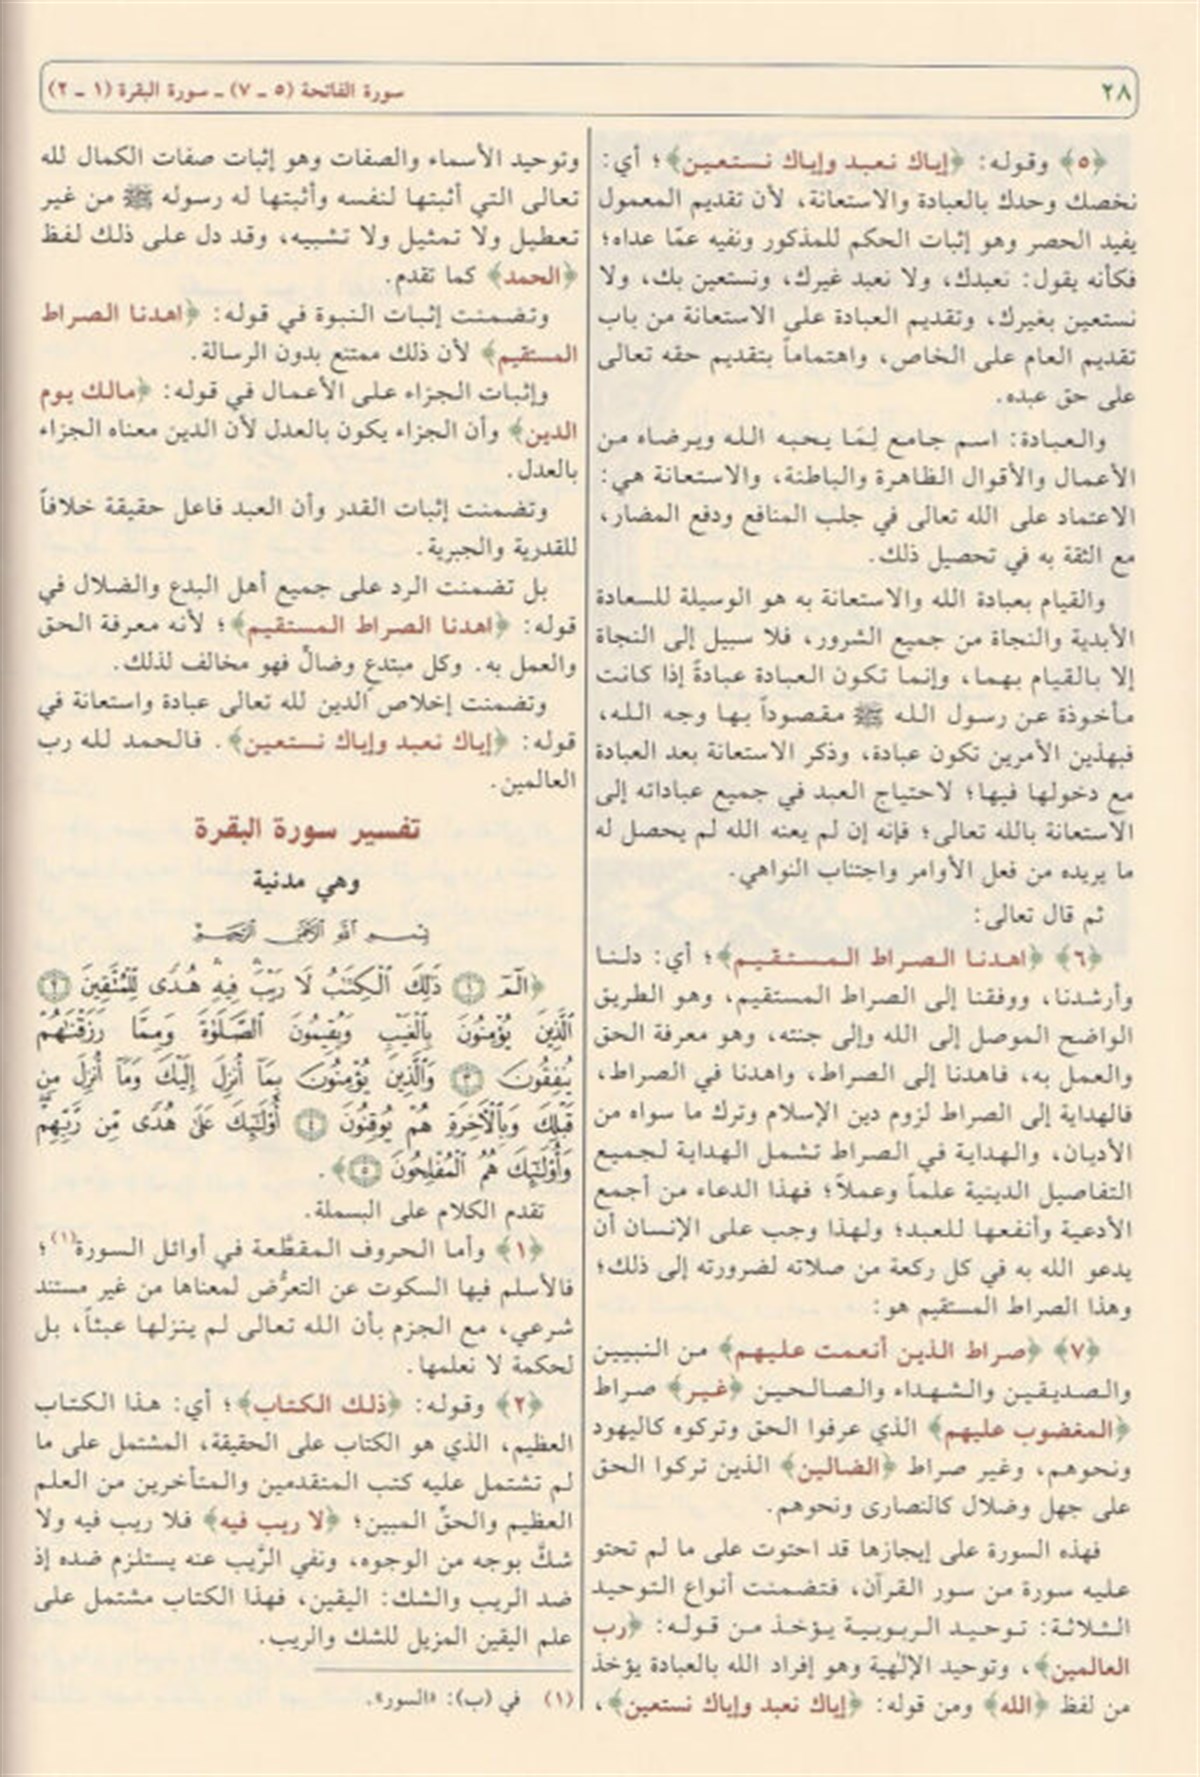 ٢٨
سورة الفاتحة (٥ ـ ٧) ـ سورة البقرة (١ ـ ٢)
﴿٥﴾ وقوله: ﴿إياك نعبد وإياك نستعين﴾؛ أي:
نخصك وحدك بالعبادة والاستعانة، لأن تقديم المعمول
يفيد الحصر وهو إثبات الحكم للمذكور ونفيه عمّا عداه؛
فكأنه يقول: نعبدك، ولا نعبد غيرك، ونستعين بك، ولا
نستعين بغيرك، وتقديم العبادة على الاستعانة من باب
تقديم العام على الخاص، واهتماماً بتقديم حقه تعالى
على حق عبده.
والعبادة: اسم جامع لِمَا يحبه الله ويرضاه من
الأعمال والأقوال الظاهرة والباطنة، والاستعانة هي:
الاعتماد على الله تعالى في جلب المنافع ودفع المضار،
مع الثقة به في تحصيل ذلك.
والقيام بعبادة الله والاستعانة به هو الوسيلة للسعادة
الأبدية والنجاة من جميع الشرور، فلا سبيل إلى النجاة
إلا بالقيام بهما، وإنما تكون العبادة عبادةً إذا كانت
مأخوذة عن رسول الله ﷺ مقصوداً بها وجه الله،
فبهذين الأمرين تكون عبادة، وذكر الاستعانة بعد العبادة
مع دخولها فيها؛ لاحتياج العبد في جميع عباداته إلى
الاستعانة بالله تعالى؛ فإنه إن لم يعنه الله لم يحصل له
ما يريده من فعل الأوامر واجتناب النواهي.
ثم قال تعالى:
﴿٦﴾ ﴿اهدنا الصراط المستقيم﴾؛ أي: دلنا
وأرشدنا، ووفقنا إلى الصراط المستقيم، وهو الطريق
الواضح الموصل إلى الله وإلى جنته، وهو معرفة الحق
والعمل به، فاهدنا إلى الصراط، واهدنا في الصراط،
فالهداية إلى الصراط لزوم دين الإسلام وترك ما سواه من
الأديان، والهداية في الصراط تشمل الهداية لجميع
التفاصيل الدينية علماً وعملاً؛ فهذا الدعاء من أجمع
الأدعية وأنفعها للعبد؛ ولهذا وجب على الإنسان أن
يدعو الله به في كل ركعة من صلاته لضرورته إلى ذلك؛
وهذا الصراط المستقيم هو:
﴿٧﴾ ﴿صراط الذين أنعمت عليهم﴾ من النبيين
والصديقين والشهداء والصالحين ﴿غير﴾ صراط
﴿المغضوب عليهم﴾ الذي عرفوا الحق وتركوه كاليهود
ونحوهم، وغير صراط ﴿الضالين﴾ الذين تركوا الحق
على جهل وضلال كالنصارى ونحوهم.
فهذه السورة على إيجازها قد احتوت على ما لم تحتو
عليه سورة من سور القرآن، فتضمنت أنواع التوحيد
الثلاثة: توحيد الربوبية يؤخذ من قوله: ﴿رب
العالمين﴾، وتوحيد الإلهية وهو إفراد الله بالعبادة يؤخذ
من لفظ ﴿الله﴾ ومن قوله: ﴿إياك نعبد وإياك نستعين﴾،
وتوحيد الأسماء والصفات وهو إثبات صفات الكمال لله
تعالى التي أثبتها لنفسه وأثبتها له رسوله ﷺ من غير
تعطيل ولا تمثيل ولا تشبيه، وقد دل على ذلك لفظ
﴿الحمد﴾ كما تقدم.
وتضمنت إثبات النبوة في قوله: ﴿اهدنا الصراط
المستقيم﴾ لأن ذلك ممتنع بدون الرسالة.
وإثبات الجزاء على الأعمال في قوله: ﴿مالك يوم
الدين﴾ وأن الجزاء يكون بالعدل لأن الدين معناه الجزاء
بالعدل.
وتضمنت إثبات القدر وأن العبد فاعل حقيقة خلافاً
للقدرية والجبرية.
بل تضمنت الرد على جميع أهل البدع والضلال في
قوله: ﴿اهدنا الصراط المستقيم﴾؛ لأنه معرفة الحق
والعمل به. وكل مبتدعٍ وضالٍّ فهو مخالف لذلك.
وتضمنت إخلاص الدين لله تعالى عبادة واستعانة في
قوله: ﴿إياك نعبد وإياك نستعين﴾. فالحمد لله رب
العالمين.
تفسير سورة البقرة
وهي مدنية
بِسْمِ ٱللَّهِ ٱلرَّحْمَٰنِ ٱلرَّحِيمِ
﴿الٓمٓ ۝١ ذَٰلِكَ ٱلْكِتَٰبُ لَا رَيْبَ ۛ فِيهِ ۛ هُدًى لِّلْمُتَّقِينَ ۝٢
ٱلَّذِينَ يُؤْمِنُونَ بِٱلْغَيْبِ وَيُقِيمُونَ ٱلصَّلَوٰةَ وَمِمَّا رَزَقْنَٰهُمْ
يُنفِقُونَ ۝٣ وَٱلَّذِينَ يُؤْمِنُونَ بِمَآ أُنزِلَ إِلَيْكَ وَمَآ أُنزِلَ مِن
قَبْلِكَ وَبِٱلْءَاخِرَةِ هُمْ يُوقِنُونَ ۝٤ أُو۟لَٰٓئِكَ عَلَىٰ هُدًى مِّن رَّبِّهِمْ
وَأُو۟لَٰٓئِكَ هُمُ ٱلْمُفْلِحُونَ ۝٥﴾.
تقدم الكلام على البسملة.
﴿١﴾ وأما الحروف المقطَّعة في أوائل السورة(١)؛
فالأسلم فيها السكوت عن التعرُّض لمعناها من غير مستند
شرعي، مع الجزم بأن الله تعالى لم ينزلها عبثاً، بل
لحكمة لا نعلمها.
﴿٢﴾ وقوله: ﴿ذلك الكتاب﴾؛ أي: هذا الكتاب
العظيم، الذي هو الكتاب على الحقيقة، المشتمل على ما
لم تشتمل عليه كتب المتقدمين والمتأخرين من العلم
العظيم والحقِّ المبين؛ ﴿لا ريب فيه﴾ فلا ريب فيه ولا
شكَّ بوجه من الوجوه، ونفي الرَّيب عنه يستلزم ضده إذ
ضد الريب والشك: اليقين، فهذا الكتاب مشتمل على
علم اليقين المزيل للشك والريب.
(١) في (ب): «السور».